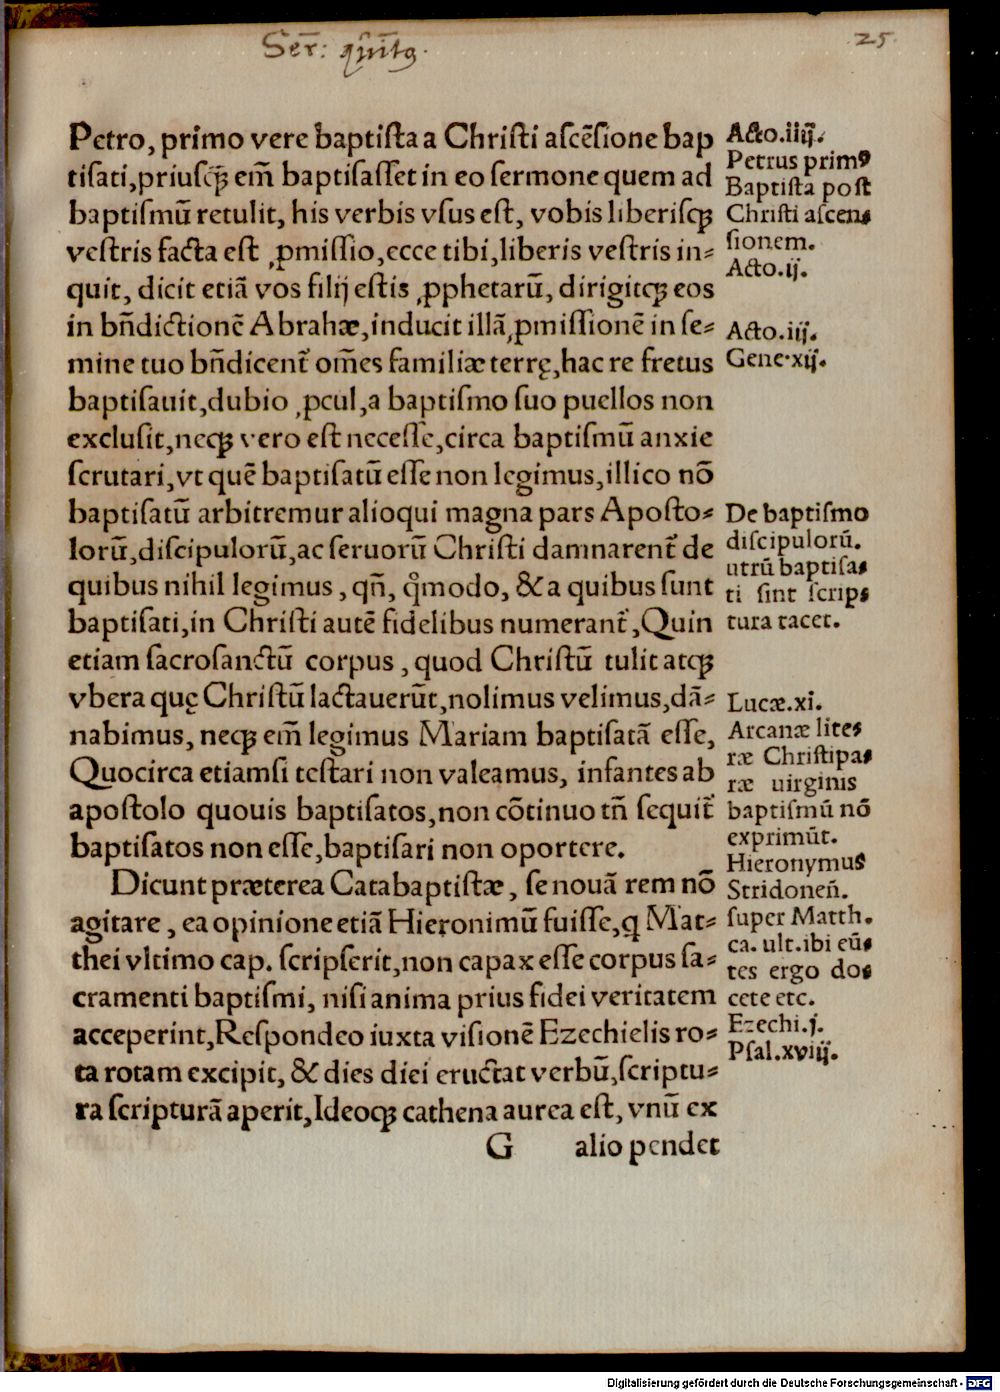 Serˉ: quīto.
25.
Petro, primo vere baptista a Christi ascēsione bap
tisati, priusqꝫ em̄ baptisasset in eo sermone quem ad
baptismū retulit, his verbis vsus est, vobis liberisqꝫ
vestris facta est ꝓmissio, ecce tibi, liberis vestris in⸗
quit, dicit etiā vos filij estis ꝓphetarū, dirigitqꝫ eos
in bn̄dictionē Abrahæ, inducit illā ꝓmissionē in se⸗
mine tuo bn̄dicent᷑ om̄es familiæ terrę, hac re fretus
baptisauit, dubio ꝓcul, a baptismo suo puellos non
exclusit, neqꝫ vero est necesse, circa baptismū anxie
scrutari, vt quē baptisatū esse non legimus, illico nō
baptisatū arbitremur alioqui magna pars Aposto⸗
lorū, discipulorū, ac seruorū Christi damnarent᷑ de
quibus nihil legimus, qn̄, qͦmodo, & a quibus sunt
baptisati, in Christi autē fidelibus numerant᷑, Quin
etiam sacrosanctū corpus, quod Christū tulit atqꝫ
vbera quę Christū lactauerūt, nolimus velimus, dā⸗
nabimus, neqꝫ em̄ legimus Mariam baptisatā esse,
Quocirca etiamsi testari non valeamus, infantes ab
apostolo quouis baptisatos, non cōtinuo tn̄ sequit᷑
baptisatos non esse, baptisari non oportere.
Dicunt præterea Catabaptistæ, se nouā rem nō
agitare, ea opinione etiā Hieronimū fuisse, q Mat⸗
thei vltimo cap. scripserit, non capax esse corpus sa⸗
cramenti baptismi, nisi anima prius fidei veritatem
acceperint, Respondeo iuxta visionē Ezechielis ro⸗
ta rotam excipit, & dies diei eructat verbū, scriptu⸗
ra scripturā aperit, Ideoqꝫ cathena aurea est, vnū ex
G alio pendet
Acto.iiij.
Petrus primꝰ
Baptista post
Christi ascen⸗
sionem.
Acto.ij.
Acto.iij.
Gene.xij.
De baptismo
discipulorū.
utrū baptisa⸗
ti sint scrip⸗
tura tacet.
Lucæ.xi.
Arcanæ lite⸗
ræ Christipa⸗
ræ uirginis
baptismū nō
exprimūt.
Hieronymus
Stridoneñ.
super Matth.
ca. ult. ibi eū⸗
tes ergo do⸗
cete etc.
Ezechi.j.
Psal.xviij.
Digitalisierung gefördert durch die Deutsche Forschungsgemeinschaft - DFG